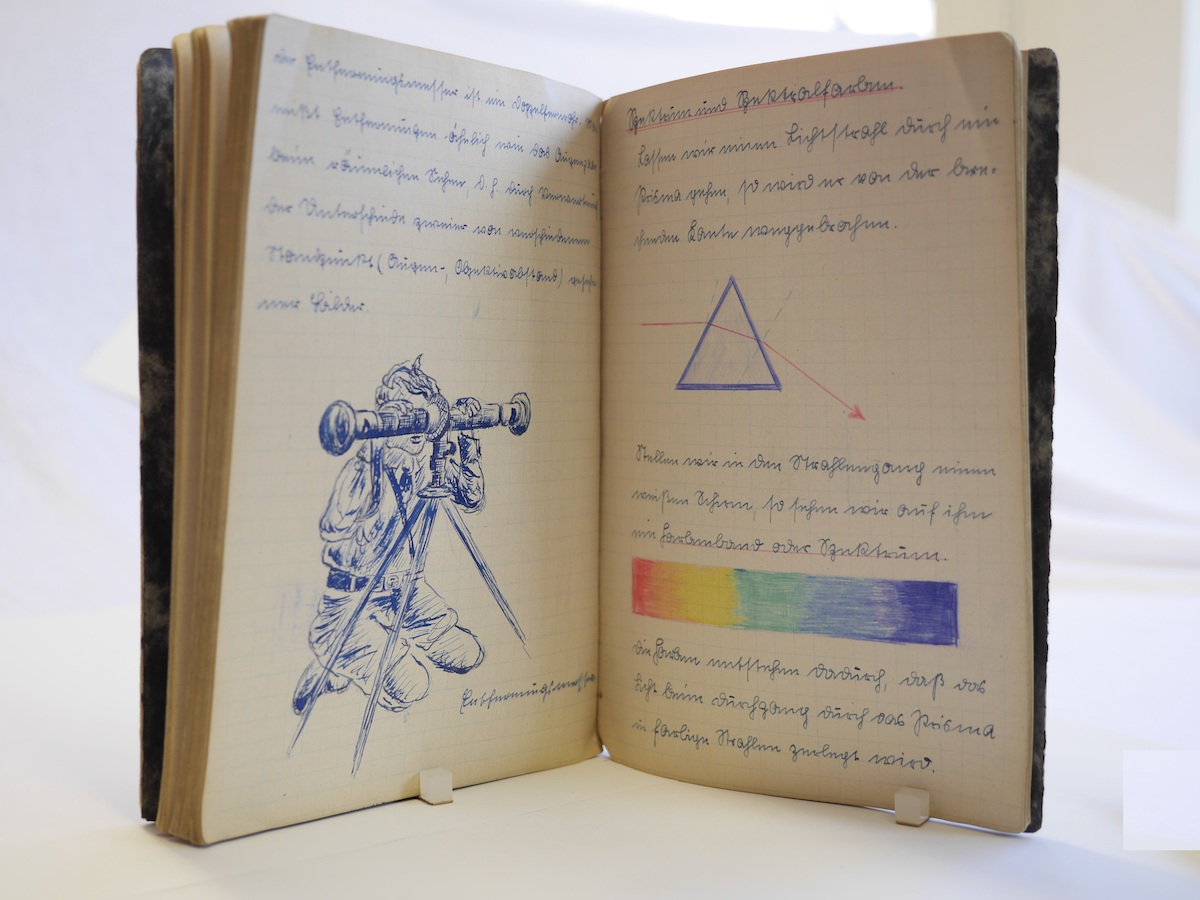 Der Entfernungsmesser ist ein Doppelfernrohr. Er
mißt Entfernungen ähnlich wie das
beim räumlichen Sehen, d. h. durch
der Unterschiede zweier von verschiedenem
Standpunkt (Augen-, Objektivabstand) gesehe-
ner Bilder.
Entfernungsmesser
Spektrum und Spektralfarben.
Lassen wir einen Lichtstrahl durch ein
Prisma gehen, so wird er von der bre-
chenden Kante weggebrochen.
Stellen wir in den Strahlengang einen
weißen Schirm, so sehen wir auf ihm
ein Farbenband oder Spektrum.
Die Farben entstehen dadurch, daß das
Licht beim Durchgang durch das Prisma
in farbige Strahlen zerlegt wird.